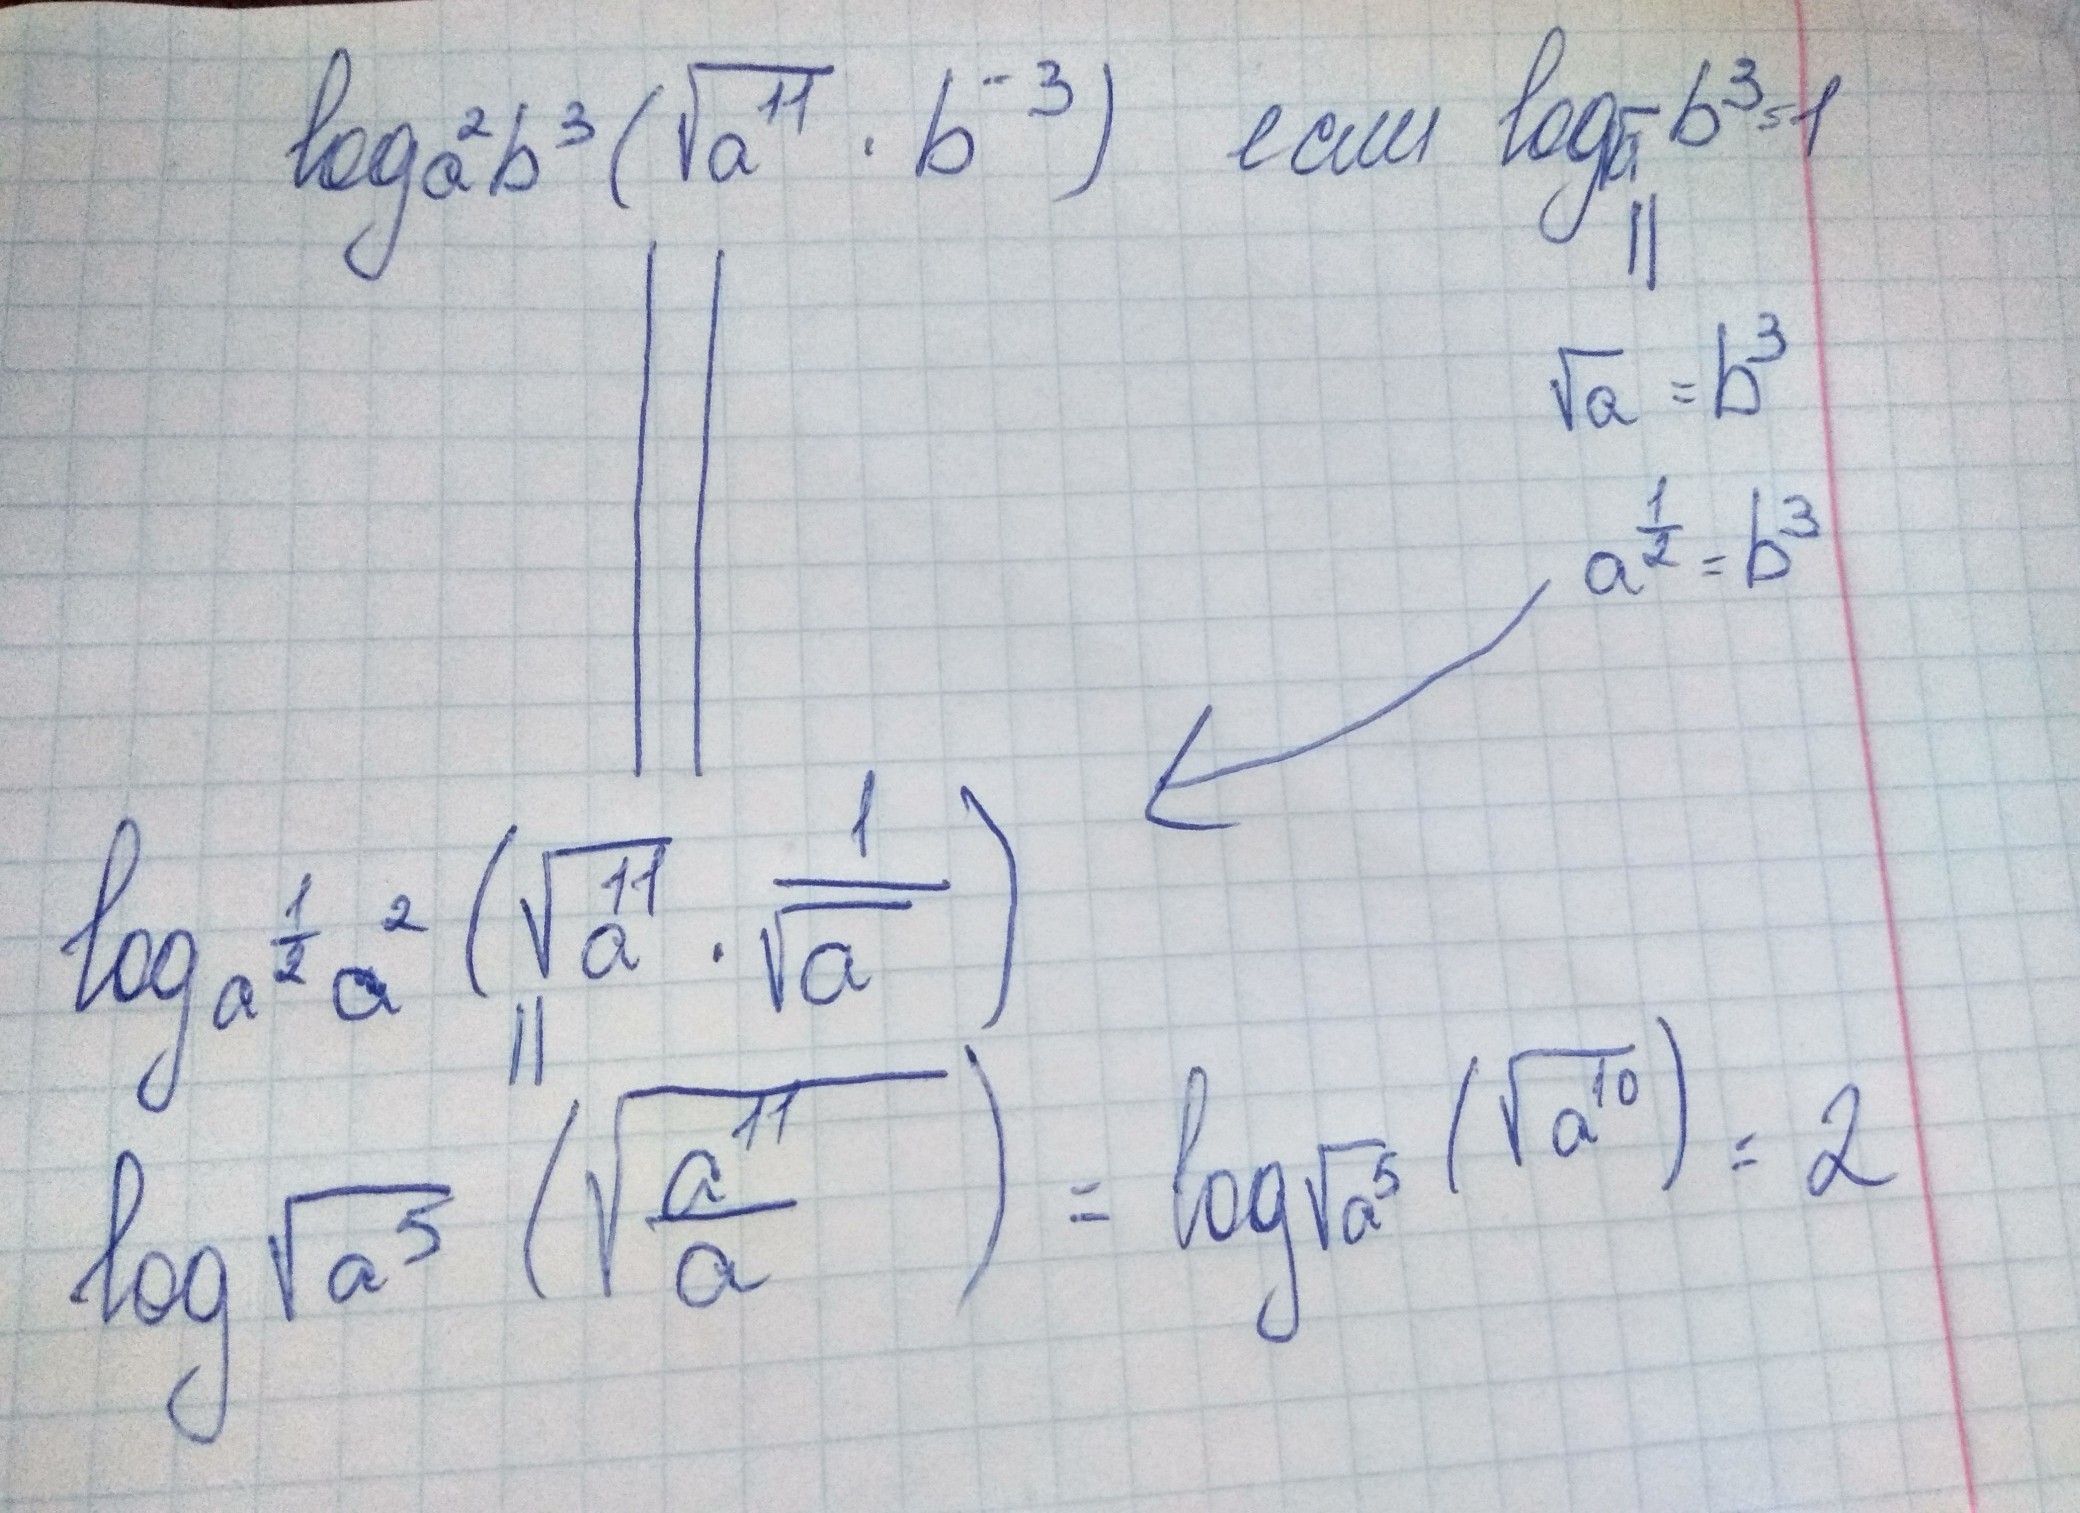 log_{a²b³}(√a¹¹ · b⁻³) если log_{√a} b³=1
||
√a = b³
a^{1/2} = b³
log_{a^{1/2} a²} (√a¹¹ · 1/√a)
||
log_{√a⁵} (√(a¹¹/a)) = log_{√a⁵} (√a¹⁰) = 2